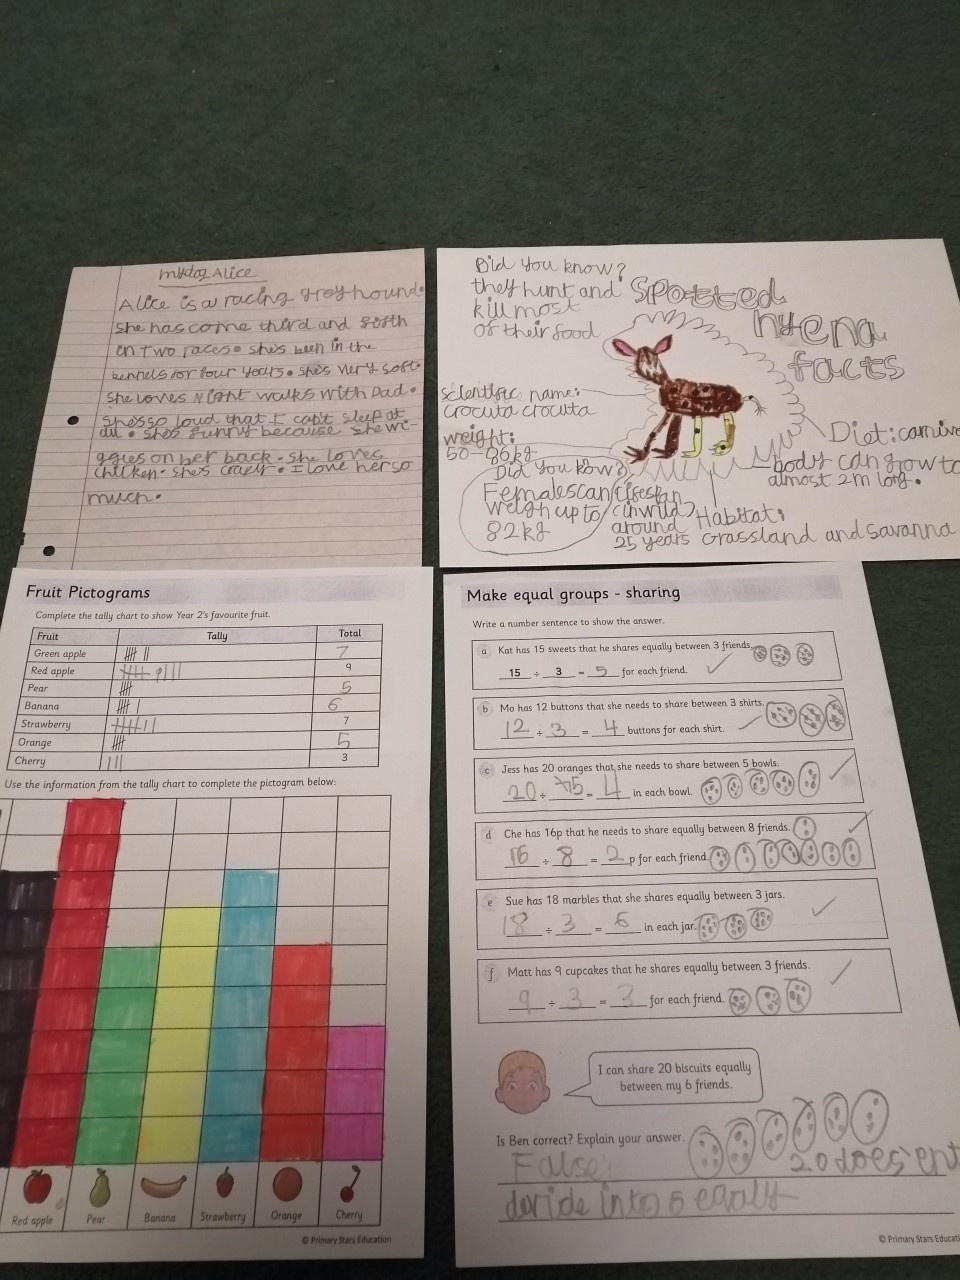 my dog Alice
Alice is a racing greyhound.
she has come third and
on two races. she's been in the
kennels for four years. she's very soft.
she loves night walks with Dad.
she's so loud that I can't sleep at
all. she's funny because she wi-
ggles on her back. she loves
chicken. she's crazy. I love her so
much.
Did you know?
they hunt and
kill most
of their food
Spotted
hyena
facts
scientific name:
crocuta crocuta
weight:
50-86kg
Did you know?
Females can
weigh up to
82kg
lifespan
(in wild)
around
25 years
Habitat:
Grassland and savanna
Diet: carnivo
body can grow to
almost 2m long.
Fruit Pictograms
Complete the tally chart to show Year 2's favourite fruit.
Fruit Tally Total
Green apple 7
Red apple 9
Pear 5
Banana 6
Strawberry 7
Orange 5
Cherry 3
Use the information from the tally chart to complete the pictogram below:
Red apple Pear Banana Strawberry Orange Cherry
© Primary Stars Education
Make equal groups - sharing
Write a number sentence to show the answer.
a Kat has 15 sweets that he shares equally between 3 friends.
15 ÷ 3 = 5 for each friend.
b Mo has 12 buttons that she needs to share between 3 shirts.
12 ÷ 3 = 4 buttons for each shirt.
c Jess has 20 oranges that she needs to share between 5 bowls.
20 ÷ 5 = 4 in each bowl.
d Che has 16p that he needs to share equally between 8 friends.
16 ÷ 8 = 2 p for each friend.
e Sue has 18 marbles that she shares equally between 3 jars.
18 ÷ 3 = 6 in each jar.
f Matt has 9 cupcakes that he shares equally between 3 friends.
9 ÷ 3 = 3 for each friend.
I can share 20 biscuits equally
between my 6 friends.
Is Ben correct? Explain your answer.
False 20 does'ent
devide into 6 equaly
© Primary Stars Educati